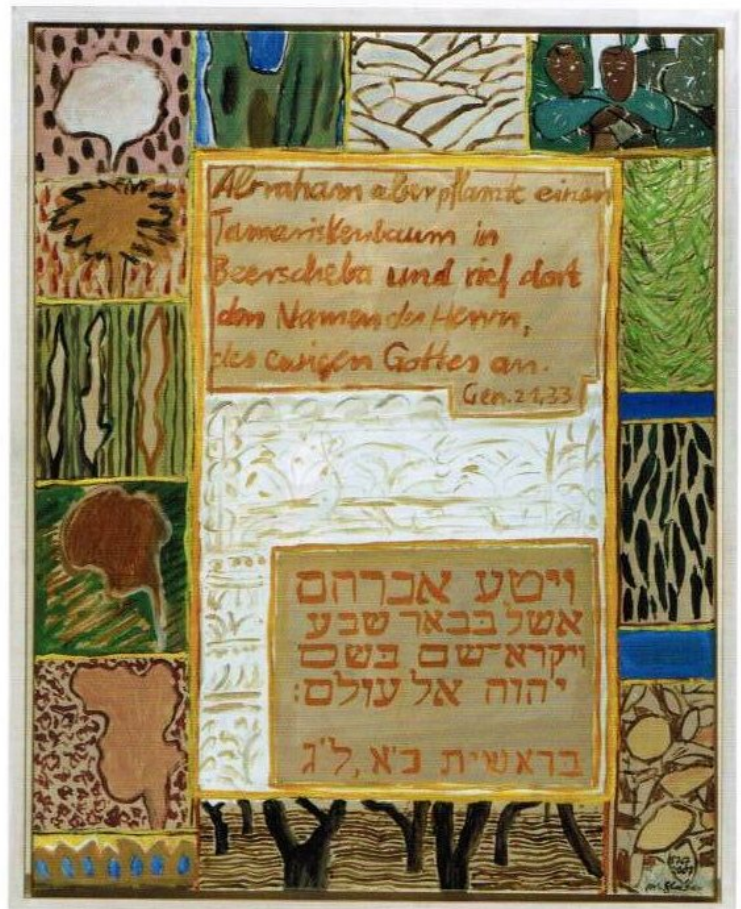 Abraham aber pflanzte einen
Tamariskenbaum in
Beerscheba und rief dort
den Namen des Herrn,
des ewigen Gottes an.
Gen. 21,33
ויטע אברהם
אשל בבאר שבע
ויקרא־שם בשם
יהוה אל עולם:
בראשית כ'א, ל'ג